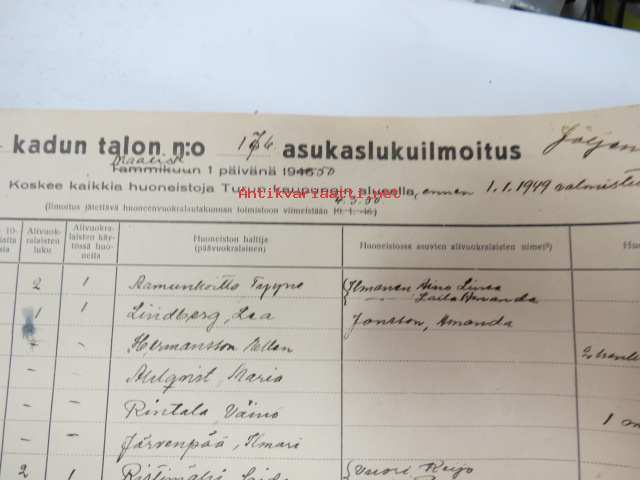 kadun talon n:o 176 asukaslukuilmoitus
Maalisk
Tammikuun 1 päivänä 1946 50
Koskee kaikkia huoneistoja Turun kaupungin alueella, ennen 1.1.1949 valmistu
Antikvariaatti.net
4.3.50
(Ilmoitus jätettävä huoneenvuokralautakunnan toimistoon viimeistään 10.-1.-46.)
Alivuok-
ralaisten
luku
Alivuokra-
laisten käy-
tössä huo-
neita
Huoneiston haltija
(päävuokralainen)
Huoneistossa asuvien alivuokralaisten nimet²)
2 1 Aamunkoitto Tyyne Ilmanen Aino Linea
Laila Amanda
1 1 Lindberg, Lea Jonsson, Amanda
- - Hermansson Ellen
- - Ahlqvist, Maria
- - Rintala, Väinö
- - Järvenpää, Ilmari
2 1 Vuori Reijo